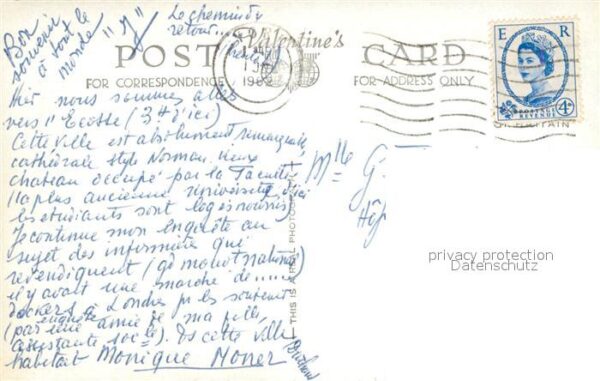 Bon
souvenir
à tout le
monde "
Le chemin du
retour...
Valentine's
POST CARD
FOR CORRESPONDENCE
FOR ADDRESS ONLY
E R
4D
POSTAGE REVENUE
Hier nous sommes allés
vers l'Ecosse (3H d'ici)
Cette ville est absolument remarquable
cathédrale style Norman. vieux
chateau occupé par la Faculté
(la plus ancienne université d'ici
les étudiants sont logés nourris)
Je continue mon enquête au
sujet des infirmières qui
revendiquent (gd national)
il y avait une marche de......
dockers à Londres pr les soutenir
enquête
(par une amie de ma fille,
assistante soc le). Ds cette ville
habitait Monique
Melle G.
Hôp
THIS IS A REAL PHOTOGRAPH
privacy protection
Datenschutz